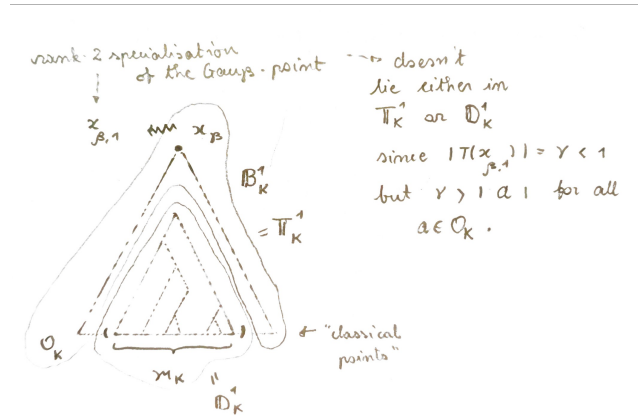 rank-2 specialisation
of the Gauss-point
⇢ doesn't
lie either in
𝕋¹_K or 𝔻¹_K
since |T(x_{β,1})| = γ < 1
but γ > |a| for all
a ∈ O_K.
x_{β,1}
x_β
𝔹¹_K
= 𝕋¹_K
O_K
( )
← "classical
points"
m_K
"
𝔻¹_K